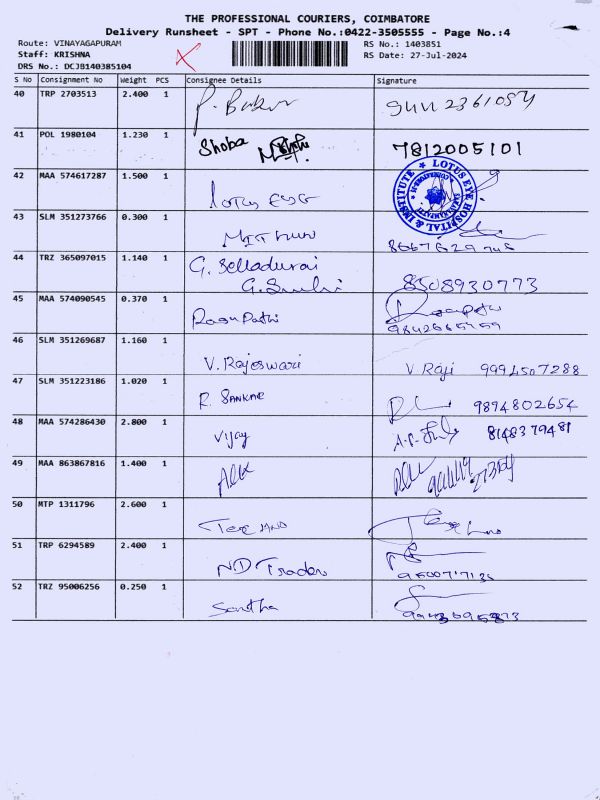 THE PROFESSIONAL COURIERS, COIMBATORE
Delivery Runsheet - SPT - Phone No.:0422-3505555 - Page No.:4
Route: VINAYAGAPURAM
Staff: KRISHNA
DRS No.: DCJB140385104
RS No.: 1403851
RS Date: 27-Jul-2024
S No Consignment No Weight PCS Consignee Details Signature
40 TRP 2703513 2.400 1
41 POL 1980104 1.230 1 Shoba 7812005101
42 MAA 574617287 1.500 1 LOTUS EYE
LOTUS EYE HOSPITAL & INSTITUTE
43 SLM 351273766 0.300 1
44 TRZ 365097015 1.140 1 G. Selladurai 8508930773
45 MAA 574090545 0.370 1 Ragupathi
46 SLM 351269687 1.160 1 V. Rajeswari V Raji 9994507288
47 SLM 351223186 1.020 1 R. SANKAR 9894802654
48 MAA 574286430 2.800 1 Vijay 8148379481
49 MAA 863867816 1.400 1
50 MTP 1311796 2.600 1
51 TRP 6294589 2.400 1 ND Traders
52 TRZ 95006256 0.250 1 Santha